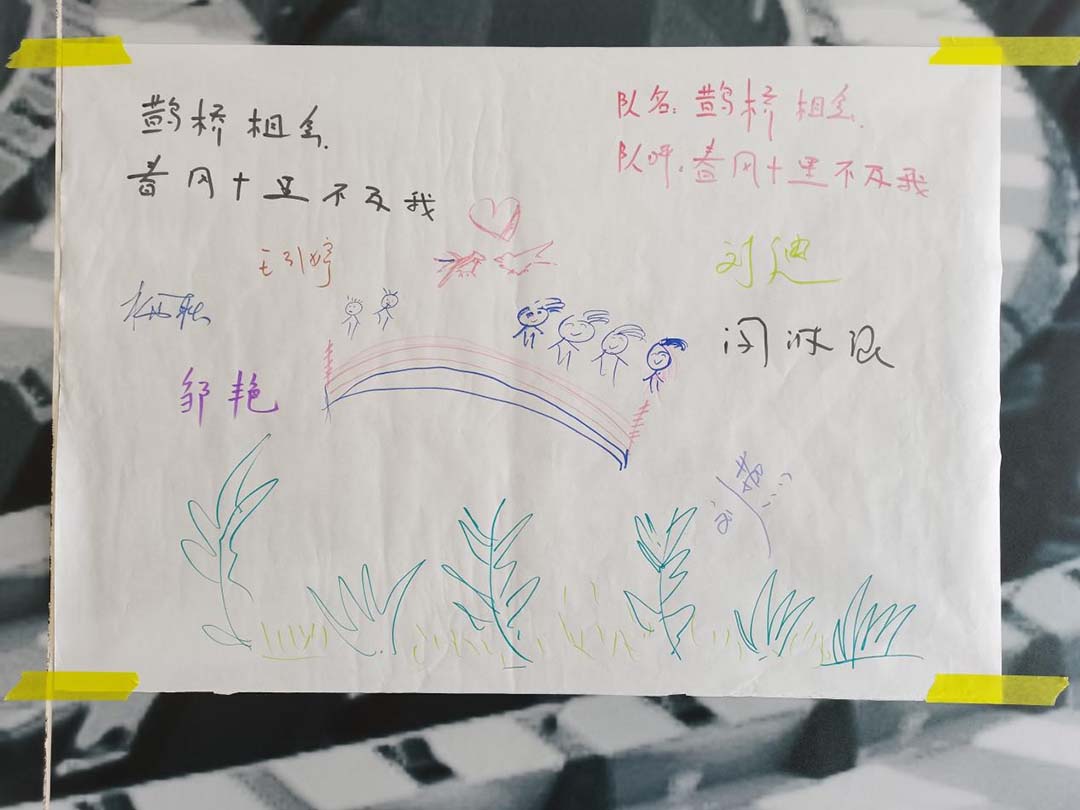 鹊桥相会
春风十里不及我
队名：鹊桥相会
队呼：春风十里不及我
王引婷
刘迪
邹艳